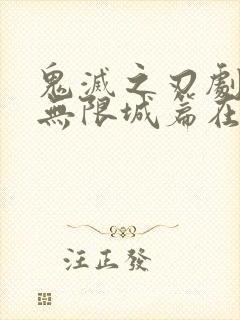 鬼滅之刃劇
無限城篇在
汪正發